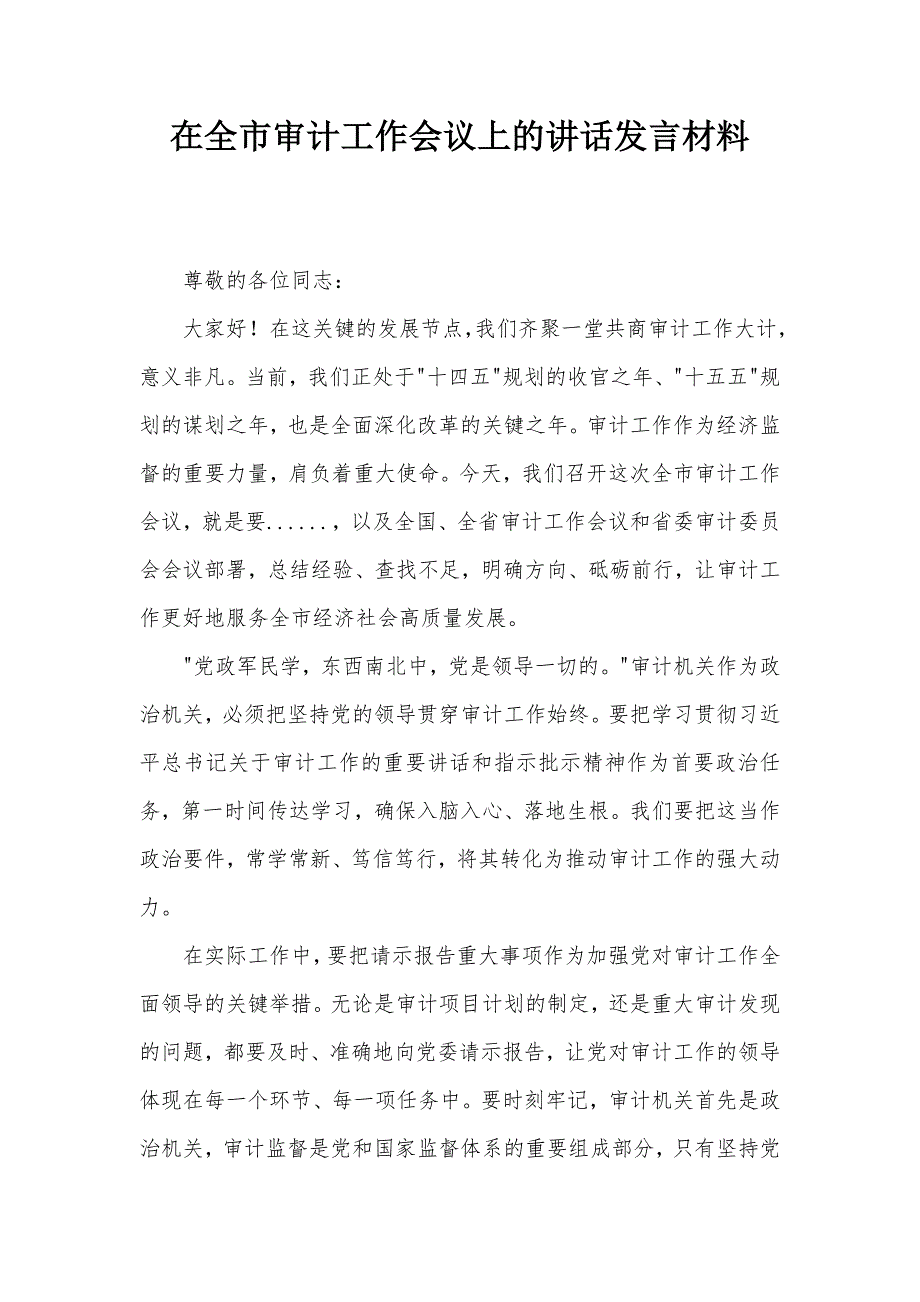 在全市审计工作会议上的讲话发言材料
尊敬的各位同志：
大家好！在这关键的发展节点，我们齐聚一堂共商审计工作大计，
意义非凡。当前，我们正处于"十四五"规划的收官之年、"十五五"规
划的谋划之年，也是全面深化改革的关键之年。审计工作作为经济监
督的重要力量，肩负着重大使命。今天，我们召开这次全市审计工作
会议，就是要......，以及全国、全省审计工作会议和省委审计委员
会会议部署，总结经验、查找不足，明确方向、砥砺前行，让审计工
作更好地服务全市经济社会高质量发展。
"党政军民学，东西南北中，党是领导一切的。"审计机关作为政
治机关，必须把坚持党的领导贯穿审计工作始终。要把学习贯彻习近
平总书记关于审计工作的重要讲话和指示批示精神作为首要政治任
务，第一时间传达学习，确保入脑入心、落地生根。我们要把这当作
政治要件，常学常新、笃信笃行，将其转化为推动审计工作的强大动
力。
在实际工作中，要把请示报告重大事项作为加强党对审计工作全
面领导的关键举措。无论是审计项目计划的制定，还是重大审计发现
的问题，都要及时、准确地向党委请示报告，让党对审计工作的领导
体现在每一个环节、每一项任务中。要时刻牢记，审计机关首先是政
治机关，审计监督是党和国家监督体系的重要组成部分，只有坚持党